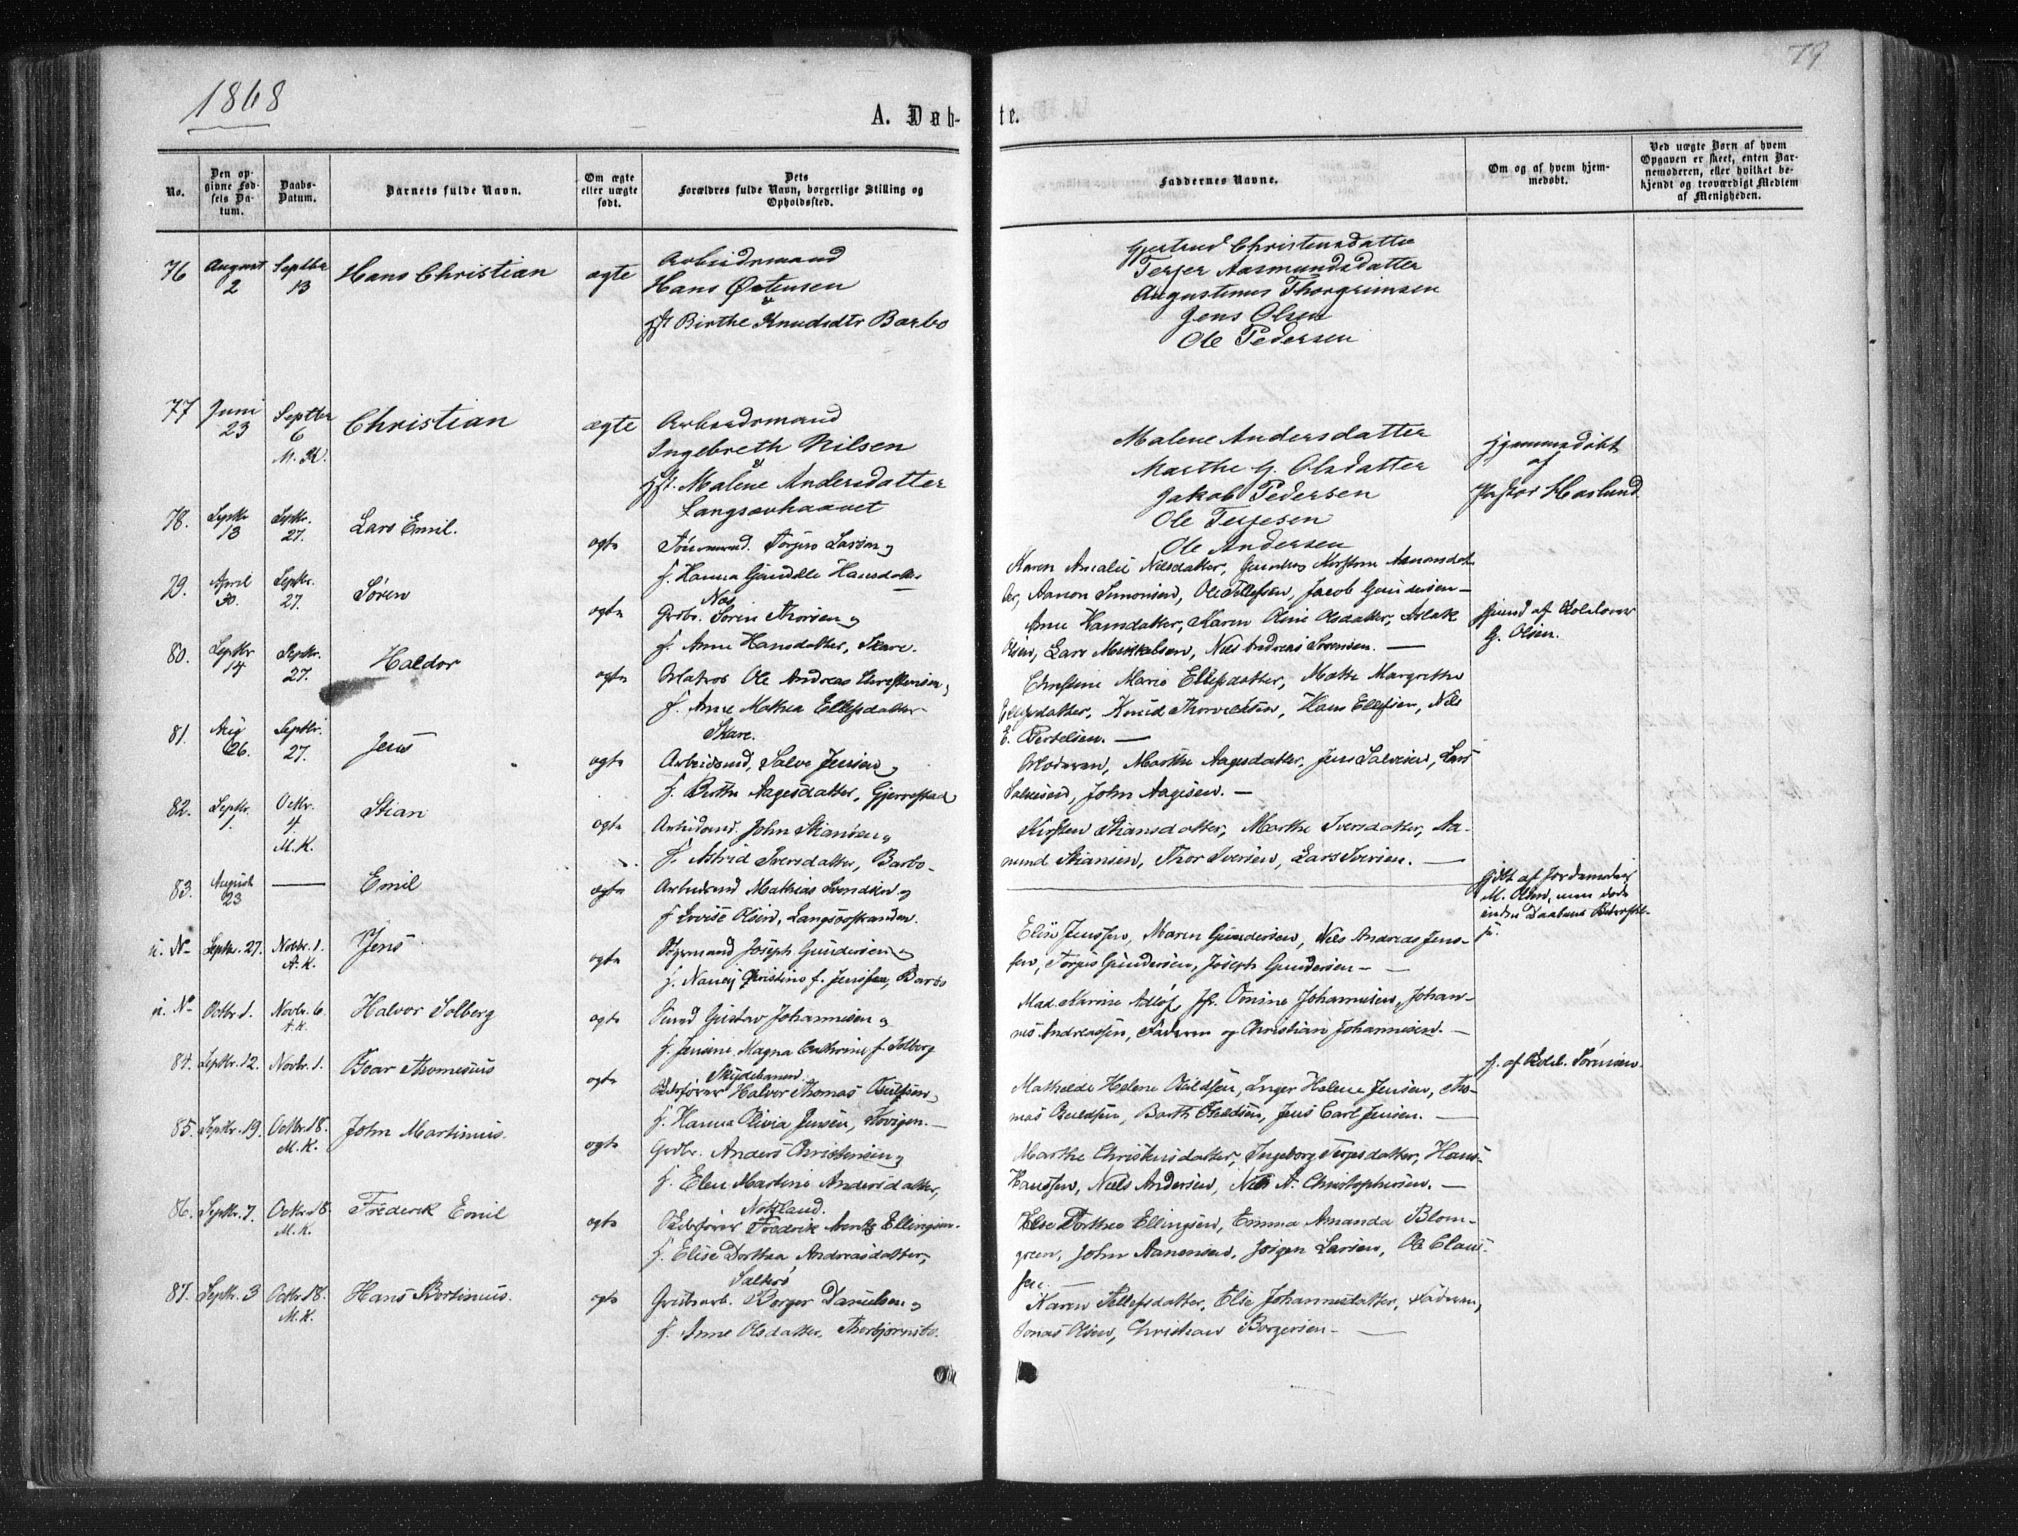 1868
79
A. Døbte.
No.
Den opgivne Fødsels Datum.
Daabs-Datum.
Barnets fulde Navn.
Om ægte eller uægte født.
Dets Forældres fulde Navn, borgerlige Stilling og Opholdssted.
Faddernes Navne.
Om og af hvem hjemmedøbt.
Ved uægte Børn af hvem Opgaven er skeet, enten Barnemoderen, eller hvilket bekjendt og troværdigt Medlem af Menigheden.
76 August 2 Septbr 13 Hans Christian ægte
Arbeidsmand
Hans Østensen
&
Hst Birthe Knudsdtr Barbo
Gjertrud Christensdatter
Terjer Aasmundsdatter
Augustinus Thorgrimsen
Jens Olsen
Ole Pedersen
77 Juni 23 Septbr 6 M. K. Christian ægte
Arbeidsmand
Ingebreth Nilsen
&
Hst. Malene Andersdatter
Langsævhaavet
Malene Andersdatter
Marthe G. Olsdatter
Jakob Pedersen
Ole Terjesen
Ole Andersen
Hjemmedøbt
af
Pastor Haslund
78. Septbr 13 Septbr. 27. Lars Emil. ægte
Tømmermd. Torjus Larsen og
H. Hanna Gunilde Hansdatter
Næs
Karen Amalie Nilsdatter, Kirstine Aanonsdat-
ter, Aanon Simonsen, Ole Tellefsen, Jacob Gundersen —
79. April 30. Septbr. 27. Søren ægte
Grdbr. Søren Thorsen og
H. Anne Hansdatter, Skare.
Anne Hansdatter, Karen Oline Olsdatter, Aslak
Olsen, Lars Mikkalsen, Niels Andreas Sørensen. —
G. Olsen.
80. Septbr 14 Septbr. 27. Haldor ægte
Matros Ole Andreas Christensen og
H. Anne Mathea Ellefsdatter
Skare.
Christene Marie Ellefsdatter, Mette Margrethe
Ellefsdatter, Knud Thorvildsen, Hans Ellefsen, Nils
E. Bertelsen. —
81. Aug 26. Septbr. 27. Jens ægte
Arbeidsmd, Salve Jensen og
H. Birthe Aagesdatter, Gjerrestad
Moderen, Marthe Aagesdatter, Jens Salvesen, Lars
Salvesen, John Aagesen. —
82. Septbr. 1. Octbr. 4 M.K. Stian ægte
Arbeidsmd. John Stiansen og
H. Astrid Iversdatter, Barbo.
Kirsten Stiansdatter, Marthe Iversdatter, Aa-
mund Stiansen, Thor Iversen, Lars Iversen. —
83. August 23 — Emil ægte
Arbeidsmd Mathias Svendsen og
H. Lovise Olsen, Langsæstranden.
hjdbt af Jordemoder
M. Olsen, men døde
inden Daabens Bekræftel-
se.
u. No Septbr. 27. Novbr. 1. A.K. Jens ægte
Styrmand Joseph Gundersen og
H. Nancy Christine f. Jenssen, Barbo
Elise Jenssen, Maren Gundersen, Nils Andreas Jens-
sen, Torjus Gundersen, Joseph Gundersen —
u. No Octbr 1. Novbr. 6. A.K. Halvor Solberg ægte
Gustav Johannesen og
H. Jensine Magna Cathrine f. Solberg
Skydebanen.
Mad. Karine Adløf, Jfr. Tonine Johannesen, Johan-
nes Andreassen, Faderen og Christian Johannesen. —
84. Septbr. 12. Novbr. 1. Boar Thomesius ægte
Skibsfører Halvor Thomas Buldsen og
H. Hanna Olivia Jensen, Kovigen. —
Mathilde Helene Buldsen, Inger Helene Jensen, Tho-
mas Buldsen, Barth Buldsen, Jens Carl Jensen. —
85. Septbr. 19. Octbr. 18. M.K. John Martinius. ægte
Grdbr. Anders Christensen og
H. Elen Martine Andersdatter,
Natland.
Marthe Christensdatter, Ingeborg Terjesdatter, Hans
Hanssen, Niels Andersen, Niels A. Christophersen. —
86. Septbr. 7. Octbr. 18. M.K. Frederik Emil ægte
Skibsfører Fredrik Arentz Ellingsen.
H. Elise Dorthea Andreasdatter,
Salterø
Else Dorthea Ellingsen, Emma Amanda Blom-
green, John Aanensen, Jørgen Larsen, Ole Claus-
sen. —
87. Septbr. 3 Octbr. 18. M.K. Hans Bertinius. ægte
Grubearb. Borger Danielsen og
H. Anne Olsdatter, Thorbjørnsbo.
Karen Tellefsdatter, Else Johannesdatter, Faderen,
Jonas Olsen, Christian Borgersen —